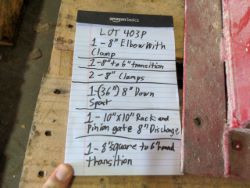 amazonbasics
LOT 403P
1 - 8" Elbow With
Clamp
1 - 8" to 6" transition
2 - 8" Clamps
1 - (36") 8" Down
Spout
1 - 10"X10" Rack and
Pinion gate 8" Discharge
1 - 8" Square to 6" round
transition